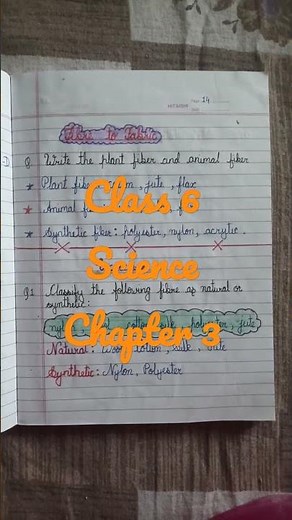 Page 14
Fiber to Fabric
Q. Write the plant fiber and animal fiber
* Plant fib , jute , flax
* Animal f
* Synthetic fiber : polyester, nylon, acrylic .
Class 6
Science
Chapter 3
Q.1 Classify the following fibre as natural or
synthetic :
polyester , jute
Natural : Wool, cotton, silk , Jute
Synthetic : Nylon , Polyester